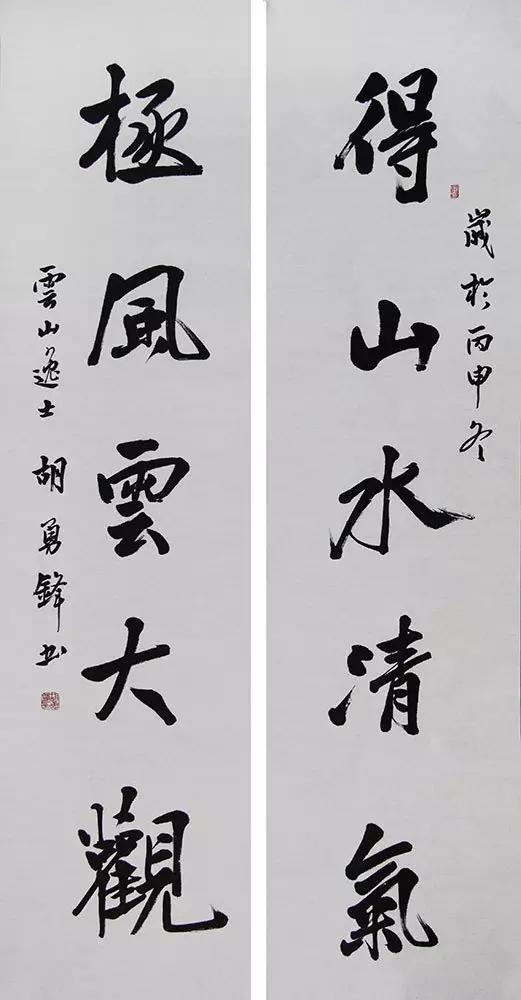 得山水清氣
歲於丙申冬
極風雲大觀
雲山逸士 胡勇鋒书